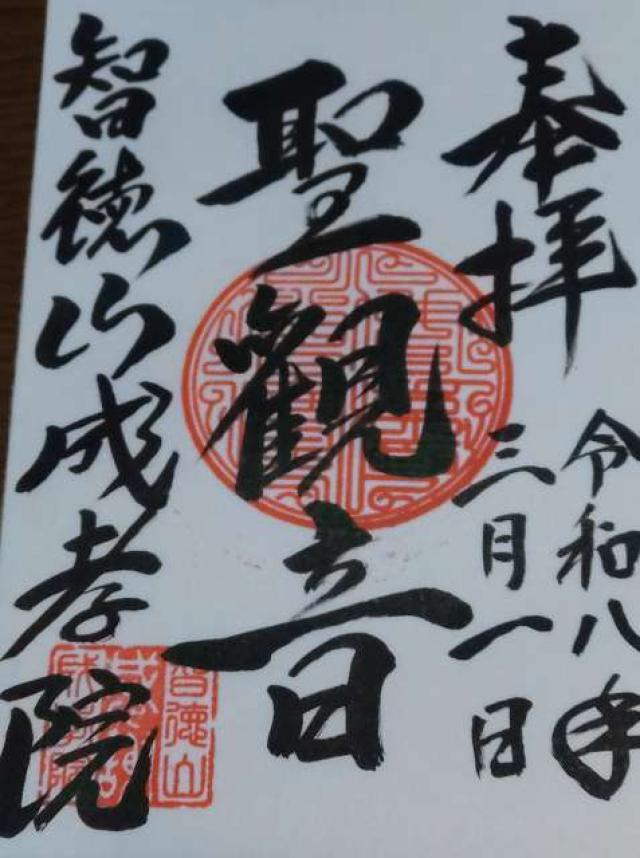 奉拝
令和八年
三月一日
聖觀音
智徳山成孝院
智徳山